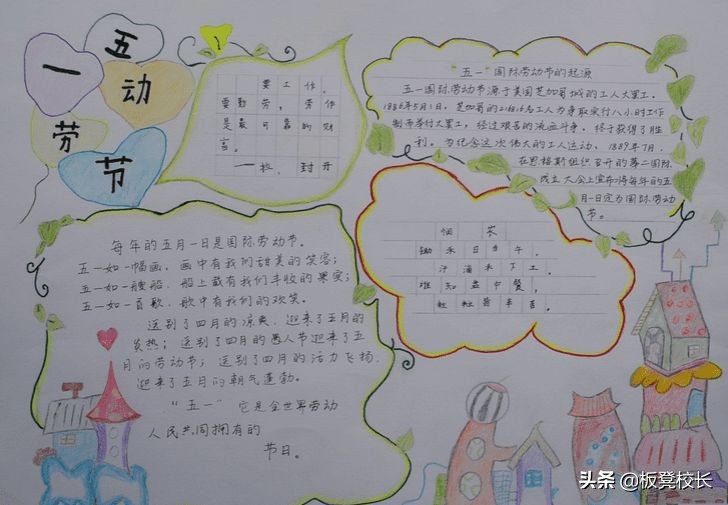 五
一
劳动
节
要工作，
要勤劳，劳作
是最可靠的财
富。
“五一”国际劳动节的起源
五一国际劳动节源于美国芝加哥城的工人大罢工。
1886年5月1日，芝加哥的21.6万名工人为争取实行八小时工作
制而举行大罢工，经过艰苦的流血斗争，终于获得了胜
利。为纪念这次伟大的工人运动，1889年7月，
在恩格斯组织召开的第二国际
成立大会上宣布将每年的五
月一日定为国际劳动
节。
悯农
锄禾日当午，
汗滴禾下土。
谁知盘中餐，
粒粒皆辛苦。
每年的五月一日是国际劳动节。
五一如一幅画，画中有我们甜美的笑容；
五一如一艘船，船上载有我们丰收的果实；
五一如一首歌，歌中有我们的欢笑。
送别了四月的凉爽，迎来了五月的
炎热；送别了四月的愚人节迎来了五
月的劳动节；送别了四月的活力飞扬，
迎来了五月的朝气蓬勃。
“五一”它是全世界劳动
人民共同拥有的
节日。
头条 @板凳校长